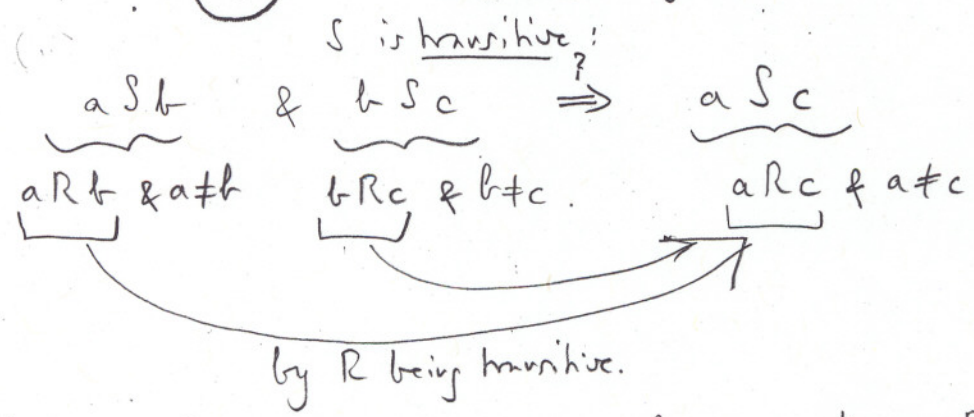 S is transitive:
aSb & bSc ?⇒ aSc
aRb & a≠b bRc & b≠c. aRc & a≠c
by R being transitive.